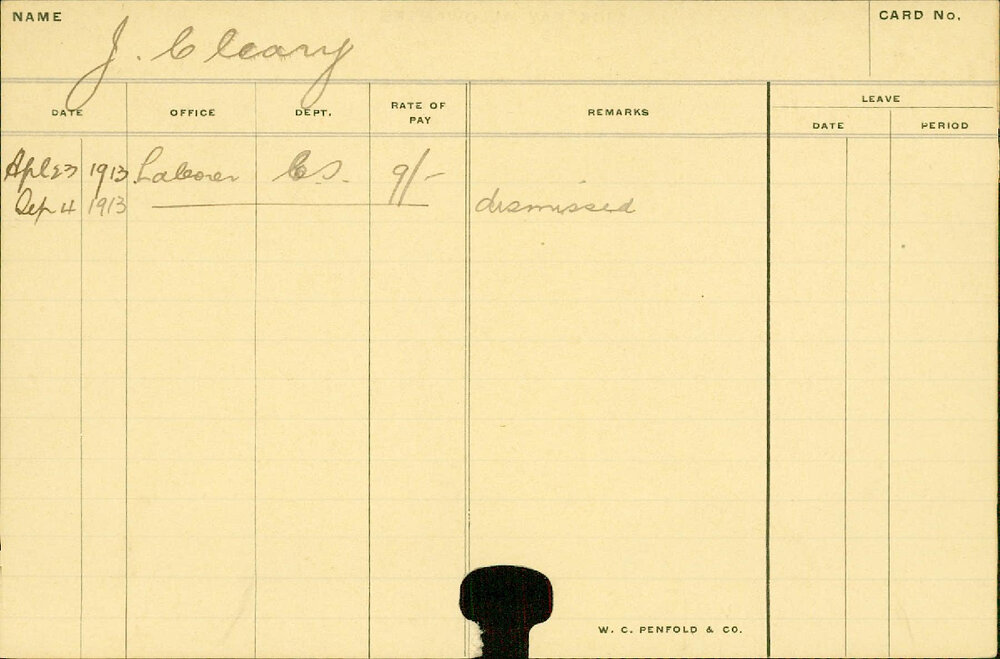 NAME J. Cleary CARD No.
DATE OFFICE DEPT. RATE OF PAY REMARKS LEAVE
DATE PERIOD
Apl 23 1913 Laborer C.S. 9/-
Sep 4 1913 dismissed
W. C. PENFOLD & CO.